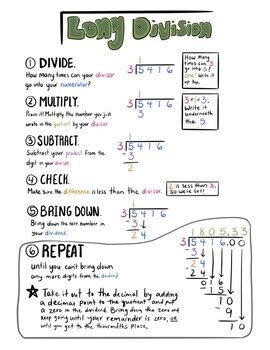 Long Division
① DIVIDE.
How many times can your divisor
go into your numerator?
1
3 5 4 1 6
How many
times can 3
go into 5?
one!
Write it
up top.
② MULTIPLY.
Prove it! Multiply the number you just
wrote in the quotient by your divisor.
1
3 5 4 1 6
3
3 x 1 = 3.
Write it
underneath
the 5.
③ SUBTRACT.
Subtract your product from the
digit in your dividend.
1
3 5 4 1 6
- 3
2
④ CHECK.
Make sure the difference is less than the divisor.
2 is less than 3.
So we're set!
⑤ BRING DOWN.
Bring down the next number in
your dividend.
1
3 5 4 1 6
- 3
2 4
⑥ REPEAT
until you can't bring down
any more digits from the dividend.
★ Take it out to the decimal by adding
a decimal point to the quotient and put
a zero in the dividend. Bring down the zero and
keep going until your remainder is zero, or
until you get to the thousandths place.
1 8 0 5.3 3
3 5 4 1 6.0 0
- 3
2 4
- 2 4
0 1
1 6
- 1 5
1 0
9
1 0